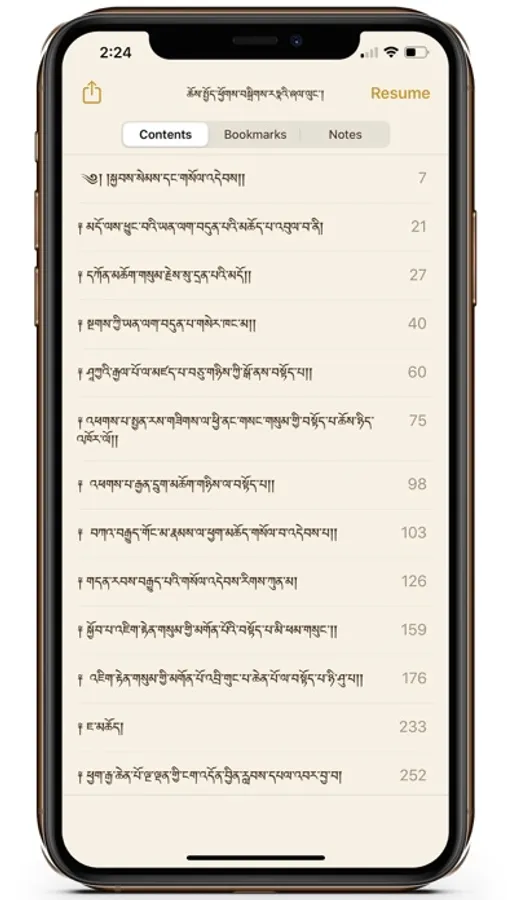 2:24
ཆོས་སྤྱོད་ཕྱོགས་བསྒྲིགས་རཏྣའི་ཞལ་ལུང་།
Resume
Contents
Bookmarks
Notes
༄༅། །སྐྱབས་སེམས་དང་གསོལ་འདེབས།། 7
༈ མདོ་ལས་ཕྱུང་བའི་ཡན་ལག་བདུན་པའི་མཆོད་པ་འབུལ་བ་ནི། 21
༈ དཀོན་མཆོག་གསུམ་རྗེས་སུ་དྲན་པའི་མདོ།། 27
༈ སྔགས་ཀྱི་ཡན་ལག་བདུན་པ་གསེར་ཁང་མ།། 40
༈ ཤཱཀྱའི་རྒྱལ་པོ་ལ་མཛད་པ་བཅུ་གཉིས་ཀྱི་སྒོ་ནས་བསྟོད་པ།། 60
༈ འཕགས་པ་སྤྱན་རས་གཟིགས་ལ་ཕྱི་ནང་གསང་གསུམ་གྱི་བསྟོད་པ་ཆོས་ཉིད་ 75
འཁོར་ལོ།།
༈ འཕགས་པ་རྒྱན་དྲུག་མཆོག་གཉིས་ལ་བསྟོད་པ།། 98
༈ བཀའ་བརྒྱུད་གོང་མ་རྣམས་ལ་ཕྱག་མཆོད་གསོལ་བ་འདེབས་པ།། 103
༈ གདན་རབས་བརྒྱུད་པའི་གསོལ་འདེབས་རིགས་ཀུན་མ། 126
༈ སྐྱོབ་པ་འཇིག་རྟེན་གསུམ་གྱི་མགོན་པོའི་བསྟོད་པ་མི་ཕམ་གསུང་།། 159
༈ འཇིག་རྟེན་གསུམ་གྱི་མགོན་པོ་འབྲི་གུང་པ་ཆེན་པོ་ལ་བསྟོད་པ་ཉི་ཤུ་པ།། 176
༈ ཇ་མཆོད། 233
༈ ཕྱག་རྒྱ་ཆེན་པོ་ལྔ་ལྡན་གྱི་ངག་འདོན་བྱིན་རླབས་དཔལ་འབར་བྱ་བ། 252